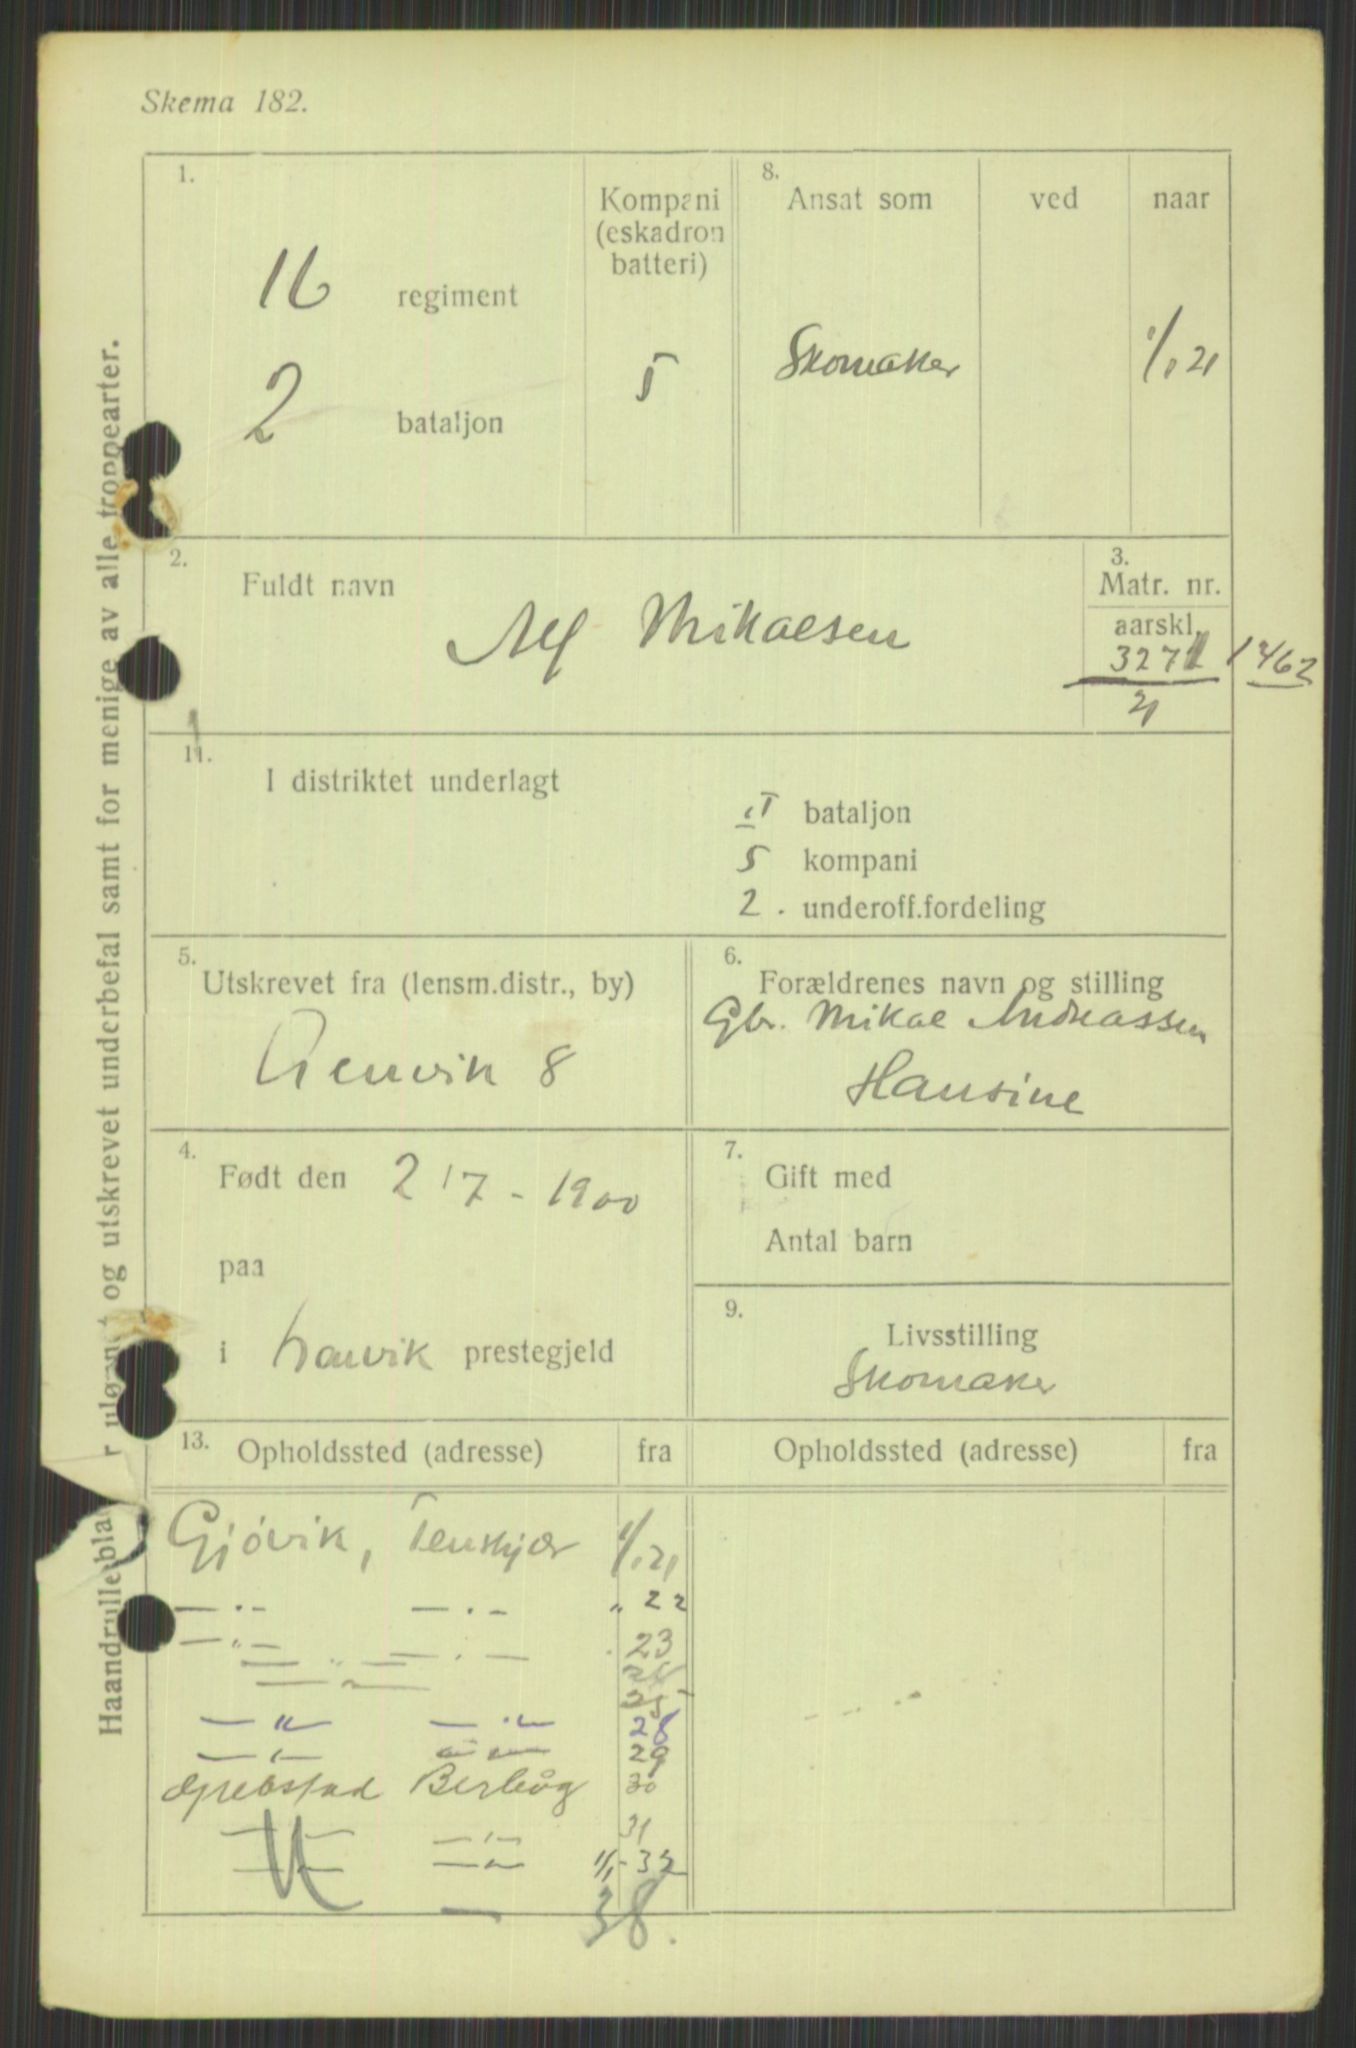 Skema 182.
1.
16 regiment
2 bataljon
Kompani
(eskadron
batteri)
5
8.
Ansat som
ved
naar
Skomaker
1/1 21
2.
Fuldt navn
Alf Mikalsen
3.
Matr. nr.
aarskl.
327
21
11.
I distriktet underlagt
II bataljon
5 kompani
2. underoff.fordeling
5.
Utskrevet fra (lensm.distr., by)
Lenvik 8
6.
Forældrenes navn og stilling
Gbr. Mikal Andreassen
Hansine
4.
Født den 2/7 - 1900
paa
i Lenvik prestegjeld
7.
Gift med
Antal barn
9.
Livsstilling
Skomaker
13.
Opholdssted (adresse)
fra
Opholdssted (adresse)
fra
Gjøvik, Tenskjær 1/1 21
— . — — . — " 22
— " — — . — 23
25
— " — — " — 28
— " — — " — 29
Grebstad Berhåg 30
— " — 31
— " — 1/1-32
38.
Haandrulleblad
og utskrevet underbefal samt for menige av alle troppearter.